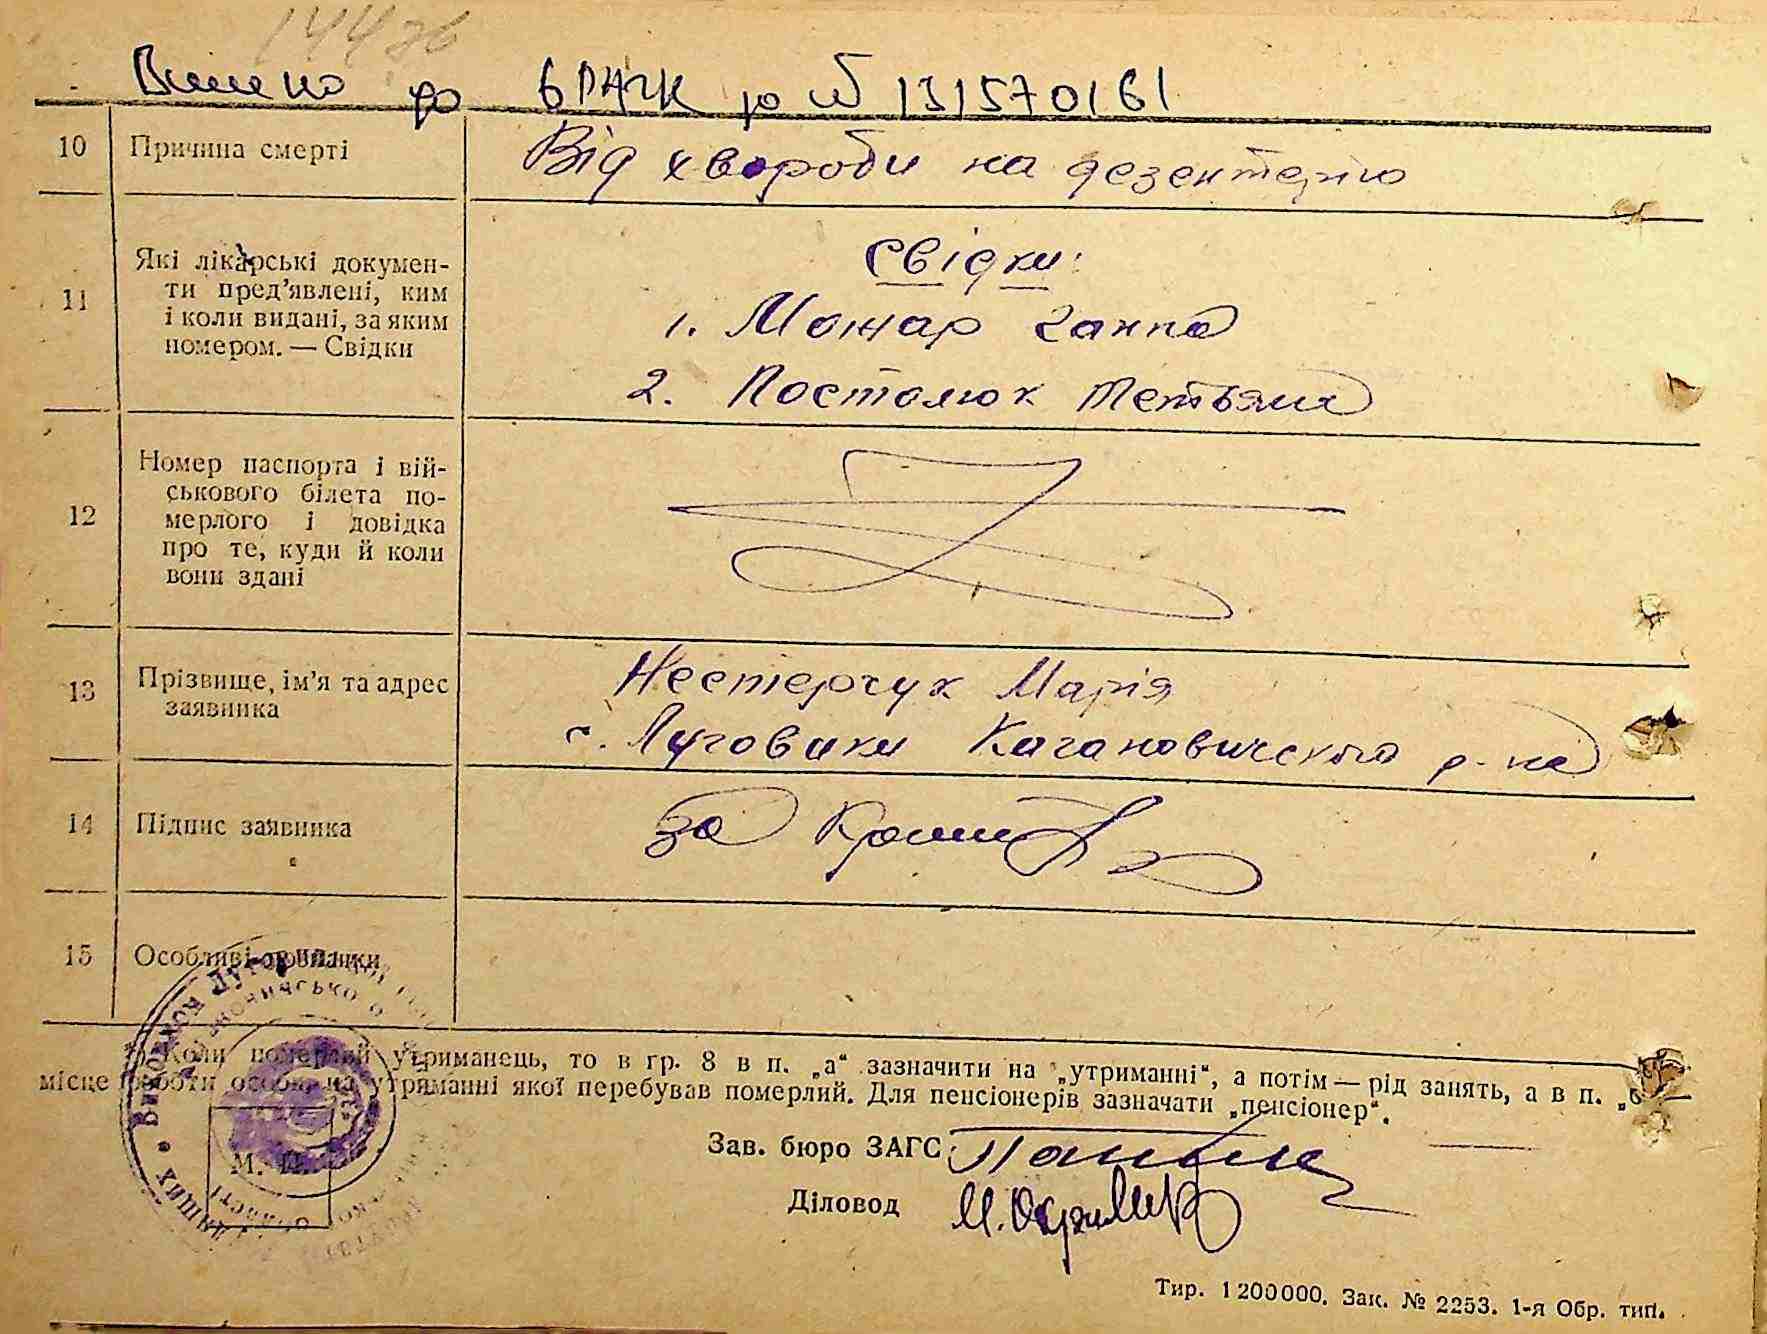 Внесено до БРАЧК до № 13157016 1
10 Причина смерті
Від хвороби на дезентерію
11 Які лікарські докумен-
ти пред'явлені, ким
і коли видані, за яким
номером. — Свідки
Свідки:
1. Можар Ганна
2. Постолюк Тетьяна
12 Номер паспорта і вій-
ськового білета по-
мерлого і довідка
про те, куди й коли
вони здані
13 Прізвище, ім'я та адрес
заявника
Нестерчук Марія
с. Луговики Кагановичського р-на
14 Підпис заявника
за
15 Особливі
*) Коли померлий утриманець, то в гр. 8 в п. „а“ зазначити на „утриманні“, а потім — рід занять, а в п. „б“ —
місце роботи особи, на утриманні якої перебував померлий. Для пенсіонерів зазначати „пенсіонер“.
Зав. бюро ЗАГС
Діловод
М. П.
Тир. 1200000. Зак. № 2253. 1-я Обр. тип.